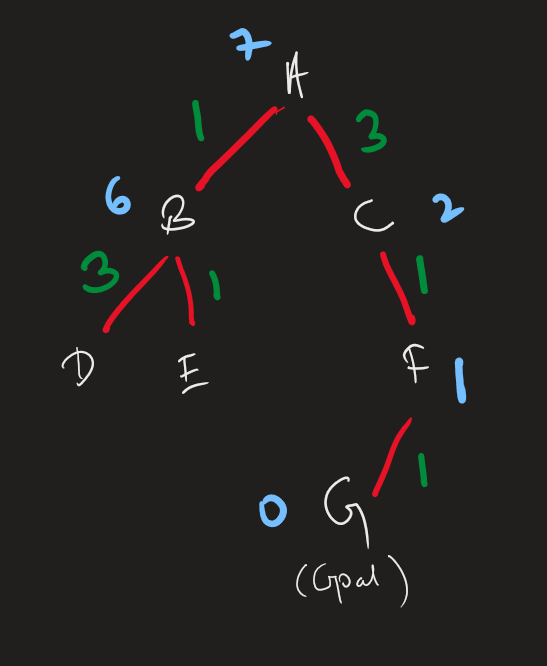 7
A
1
3
6
B
C
2
3
1
1
D
E
F
1
1
0
G
(Goal)